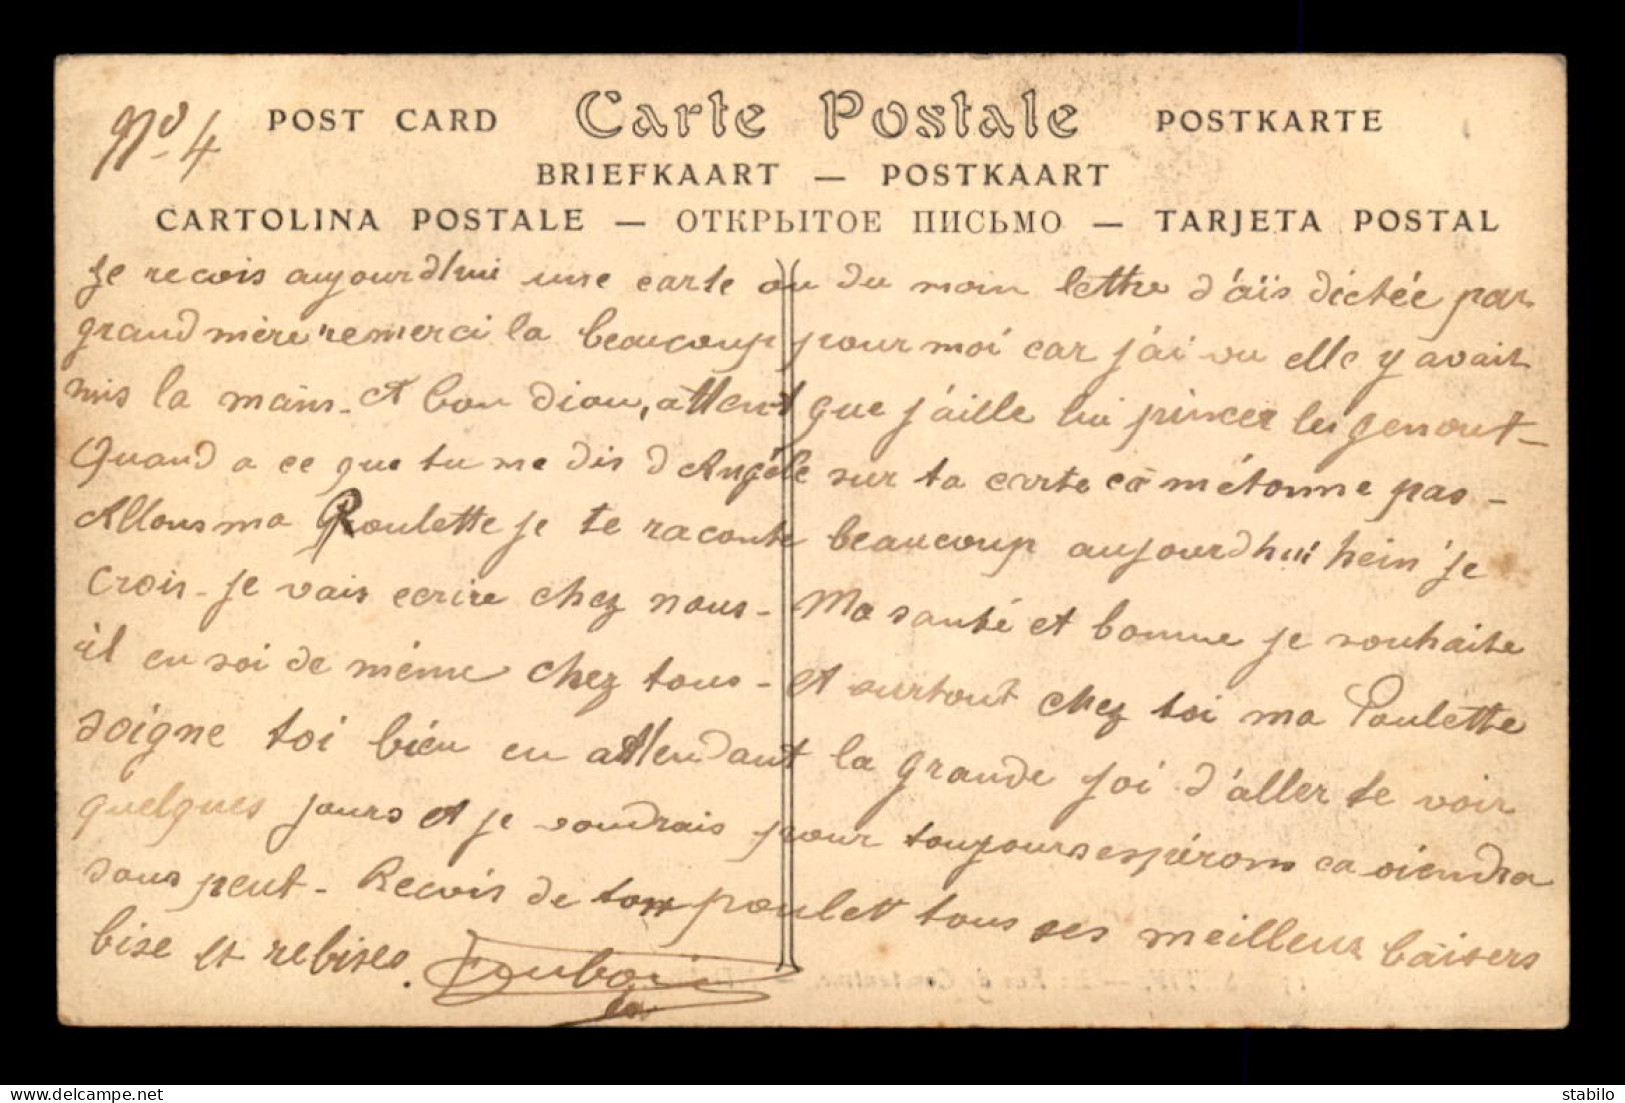 No 4
POST CARD Carte Postale POSTKARTE
BRIEFKAART — POSTKAART
CARTOLINA POSTALE — ОТКРЫТОЕ ПИСЬМО — TARJETA POSTAL
Je recois aujourd'hui une carte ou du moin lettre d'aïs dictée par
grand mère remerci la beaucoup pour moi car j'ai vu elle y avait
mis la main. et bon diou, attent que j'aille lui pincer les genout -
Quand a ce que tu me dis d Angèle sur ta carte ca m'étonne pas -
Allons ma Poulette je te raconte beaucoup aujourd'hui hein je
crois - je vais ecrire chez nous - Ma santé et bonne je souhaite
il en soi de même chez tous - et surtout chez toi ma Poulette
soigne toi bien en attendant la grande joi d'aller te voir
quelques jours et je voudrais pour toujours espérons ca viendra
sous peut - Recois de ton poulet tous ses meilleur baisers
bise et rebises. Dubois
stabilo